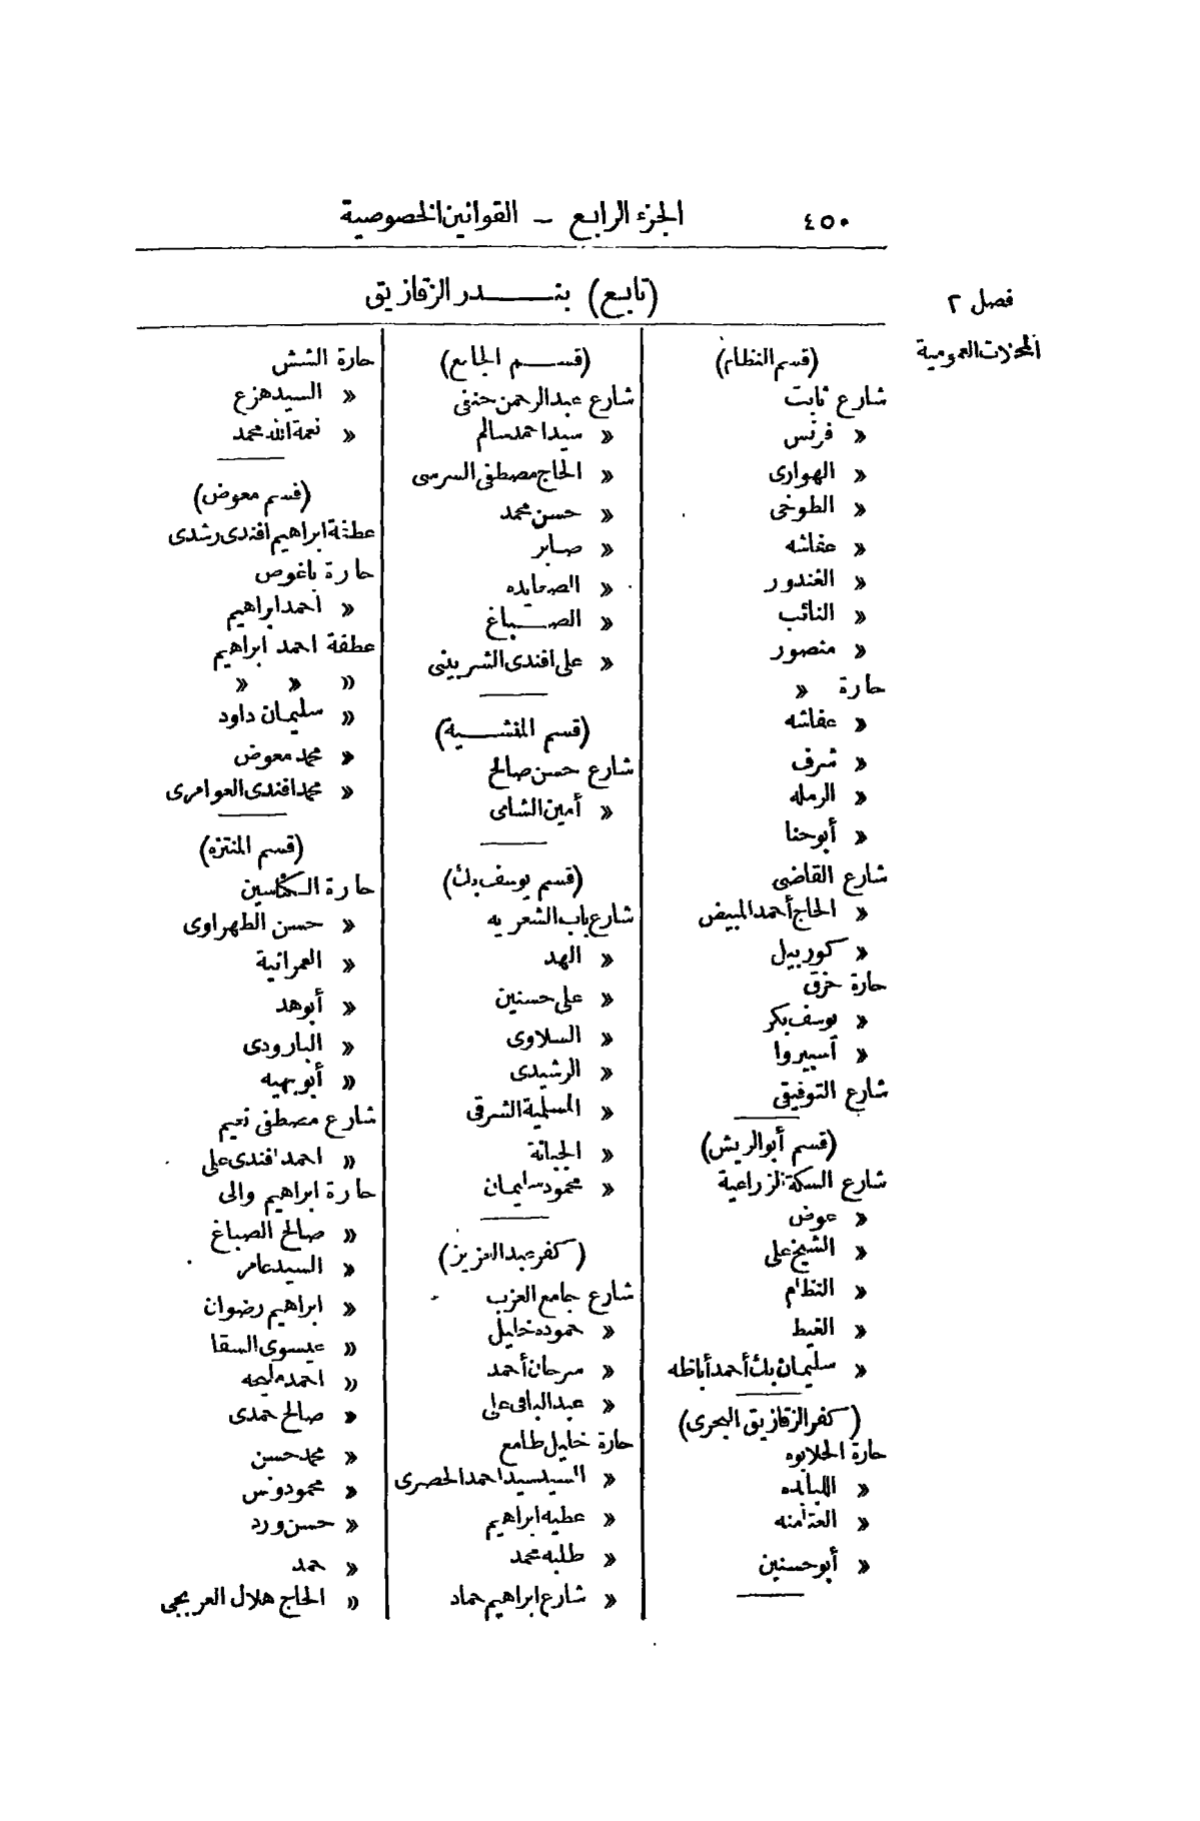 ٤٥٠
الجزء الرابع – القوانين الخصوصية
فصل ٢
المحلات العمومية
(تابع) بنـدر الزقازيق
(قسم النظام)
شارع ثابت
« فرنس
« الهوارى
« الطوخى
« عفاشه
« الغندور
« النائب
« منصور
حارة «
« عفاشه
« شرف
« الرمله
« أبوحنا
شارع القاضى
« الحاج أحمد المبيض
« كوربيل
حارة خزق
« يوسف بكر
« أسبيروا
شارع التوفيقى
(قسم أبوالريش)
شارع السكة الزراعية
« عوض
« الشيخ على
« النظام
« الغيط
« سليمان بك أحمد أباظه
(كفر الزقازيق البحرى)
حارة الحلابوه
« اللبايده
« العتامنه
« أبوحسنين
(قسـم الجامع)
شارع عبدالرحمن حنفى
« سيد احمد سالم
« الحاج مصطفى السرسى
« حسن محمد
« صابر
« الصعايده
« الصـباغ
« على افندى الشربينى
(قسم المنشـية)
شارع حسن صالح
« أمين الشامى
(قسم يوسف بك)
شارع باب الشعريه
« الهد
« على حسنين
« السلاوى
« الرشيدى
« المسلمية الشرقى
« الجبانة
« محمود سليمان
(كفر عبد العزيز)
شارع جامع العزب
« حموده خليل
« سرحان أحمد
« عبد الباقى على
حارة خليل طامع
« السيد سيد احمد الحصرى
« عطيه ابراهيم
« طلبه محمد
« شارع ابراهيم حماد
حارة الشش
« السيد هزع
« نعمة الله محمد
(قسم معوض)
عطفة ابراهيم افندى رشدى
حارة باغوص
« أحمد ابراهيم
عطفة احمد ابراهيم
« « «
« سليمان داود
« محمد معوض
« محمد افندى العوامرى
(قسم المنتزه)
حارة الكناسين
« حسن الطهراوى
« العمرانية
« أبوهد
« البارودى
« أبوبهيه
شارع مصطفى نعيم
« احمد افندى على
حارة ابراهيم والى
« صالح الصباغ
« السيد عامر
« ابراهيم رضوان
« عيسوى السقا
« احمد مليحه
« صالح حمدى
« محمد حسن
« محمود ونس
« حسن ورد
« حمد
« الحاج هلال العربجى